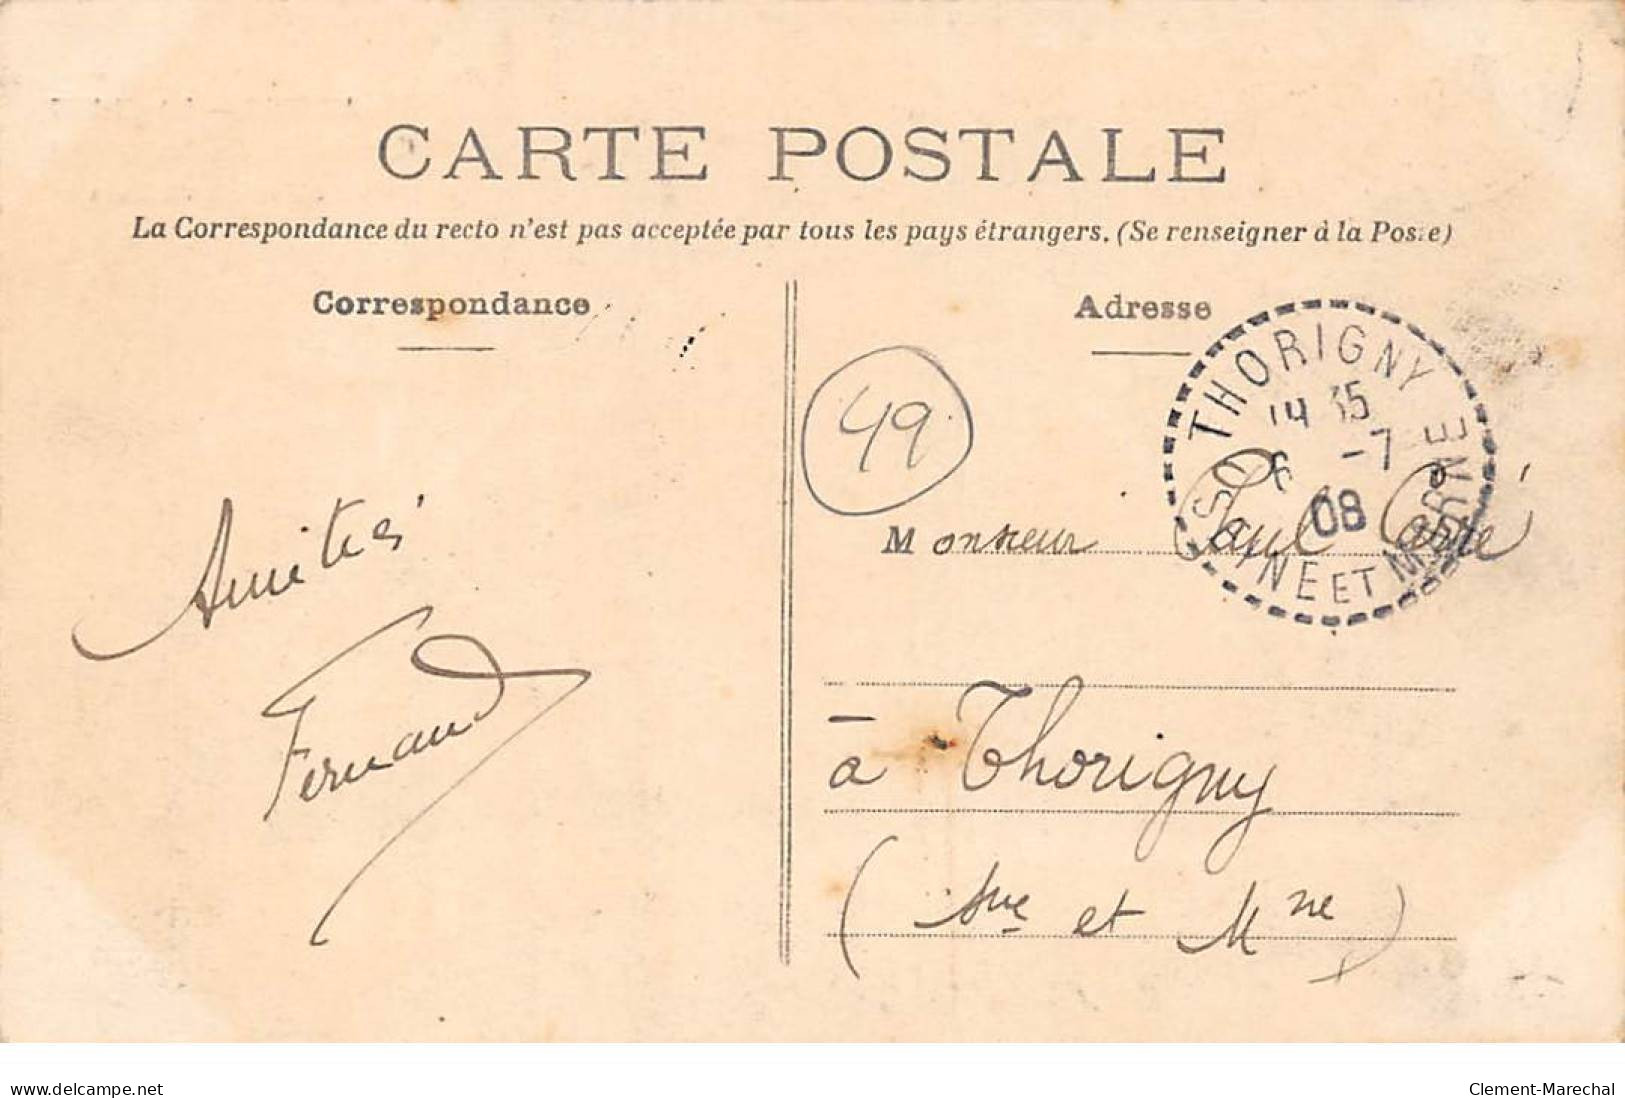 CARTE POSTALE
La Correspondance du recto n'est pas acceptée par tous les pays étrangers. (Se renseigner à la Poste)
Correspondance
Adresse
THORIGNY
14 35
6 -7
08
SEINE ET MARNE
49
Amitiés
Fernand
Monsieur Paul
à Thorigny
(Sne et Mne)
www.delcampe.net
Clement-Marechal